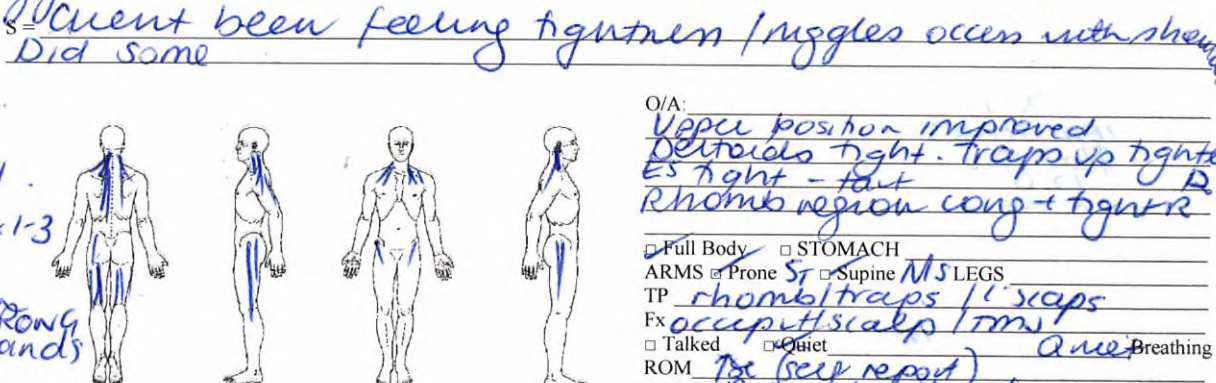 S = Client been feeling tightness / niggles occurs with
Did some
O/A:
Upper position improved
Deltoids tight. Traps up tight
ES tight - taut R
Rhomb region cong + tight R
1-3
□ Full Body □ STOMACH
ARMS □ Prone ST □ Supine MS LEGS
TP rhomb/traps /L scaps
STRONG
hands
Fx occiput/scalp /TMJ
□ Talked □ Quiet Breathing
ROM (self report)